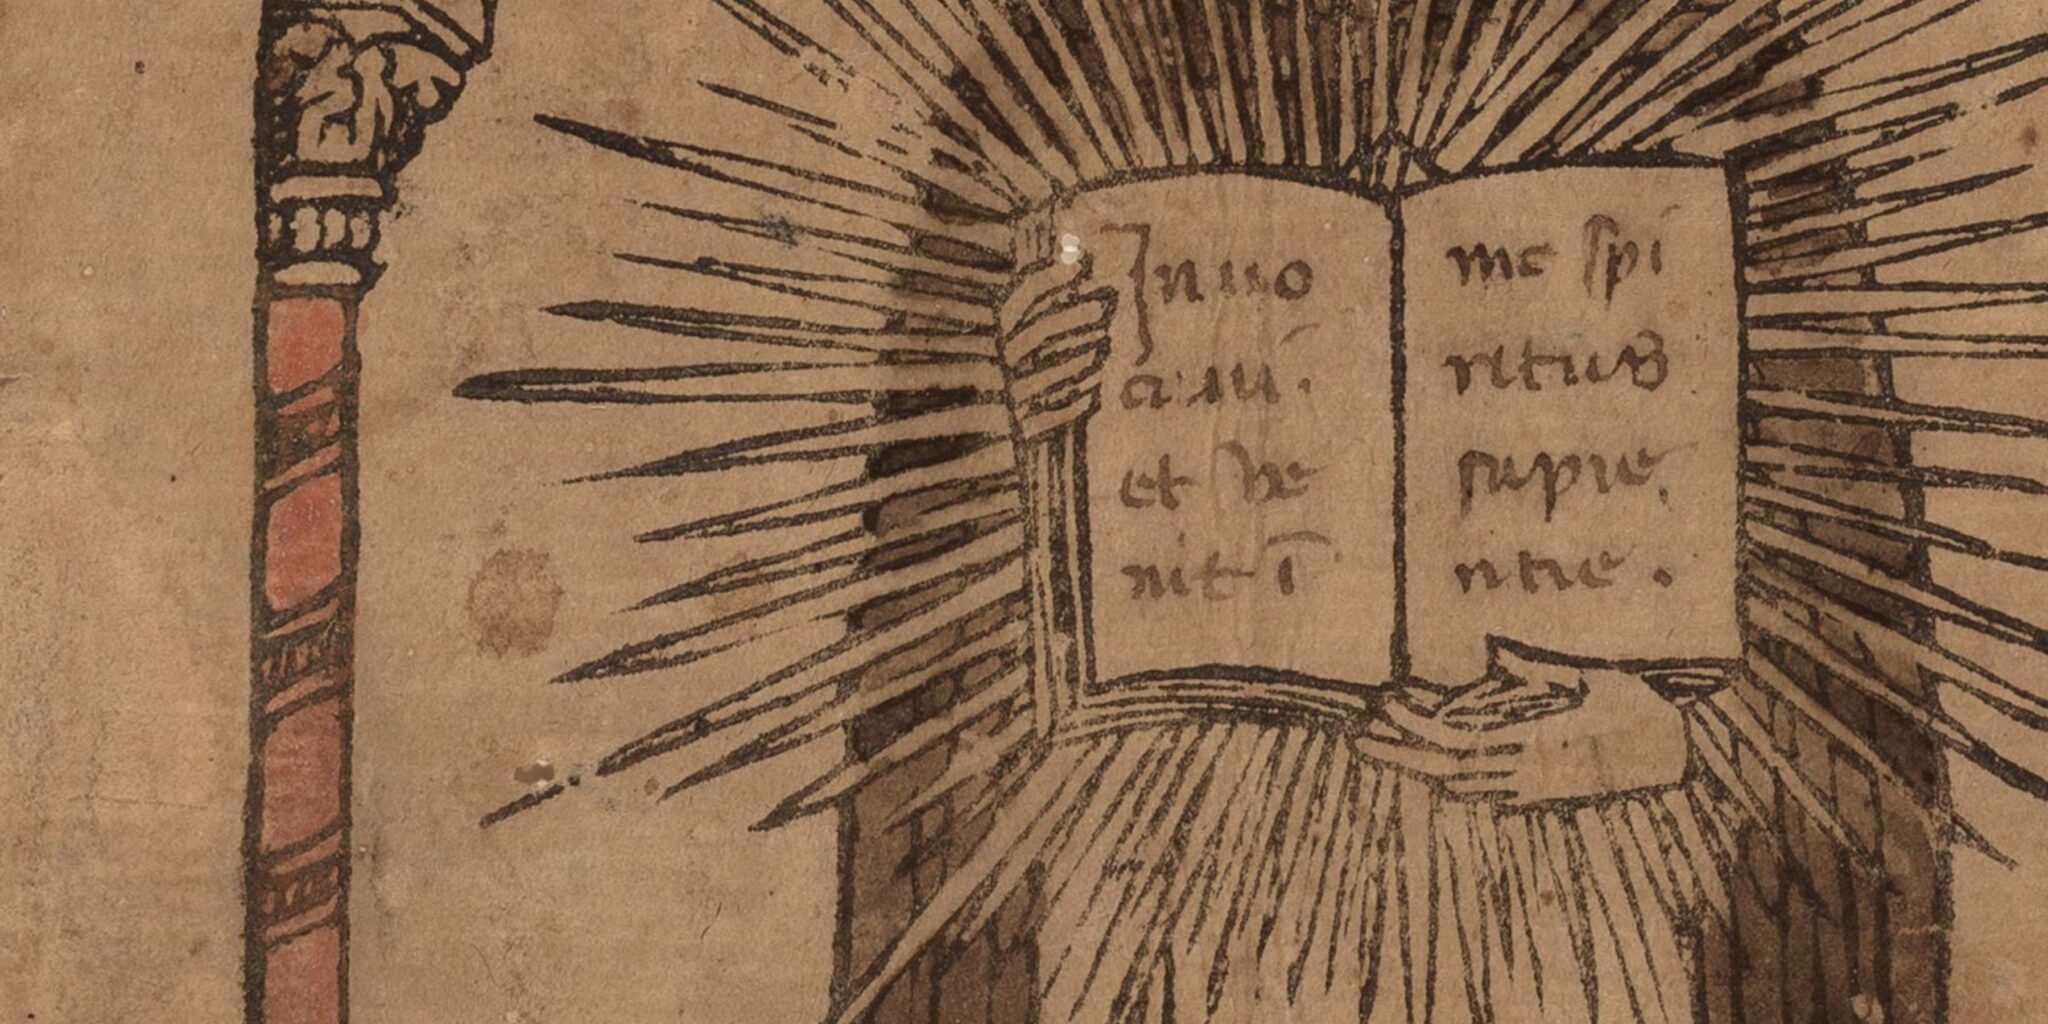 Inuo
caui.
et ve
nit ī
me spi
ritus
sapie
ntie.